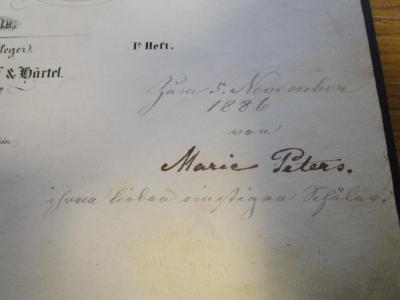 leger.
1s Heft.
& Härtel.
Zum 5. November
1886
von
Marie Peters.
ihrem lieben einstigen Schüler.